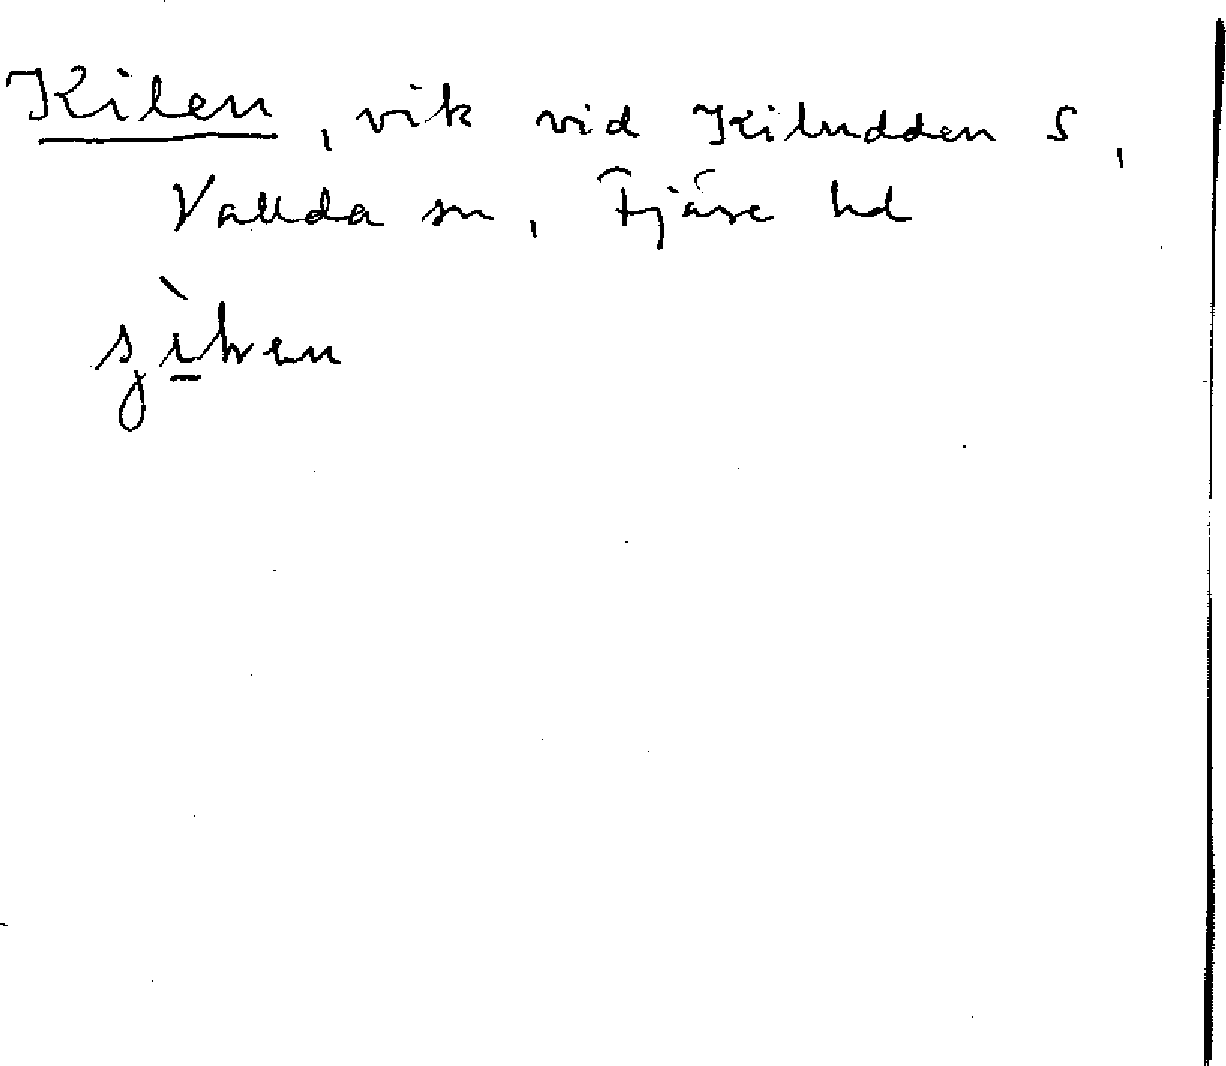 Kilen, vik vid Kiludden S,
Vallda sn, Fjäre hd